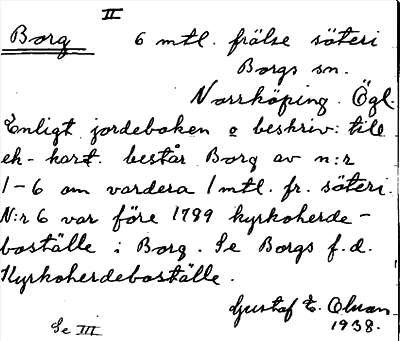 II
Borg 6 mtl. frälse säteri
Borgs sn.
Norrköping. Ögl.
Enligt jordeboken o beskriv: till
ek-kart. består Borg av n:r
1-6 om vardera 1 mtl. fr. säteri.
N:r 6 var före 1789 kyrkoherde-
boställe i Borg. Se Borgs f.d.
Kyrkoherdeboställe.
Gustaf E. Olsson
1938.
Se III